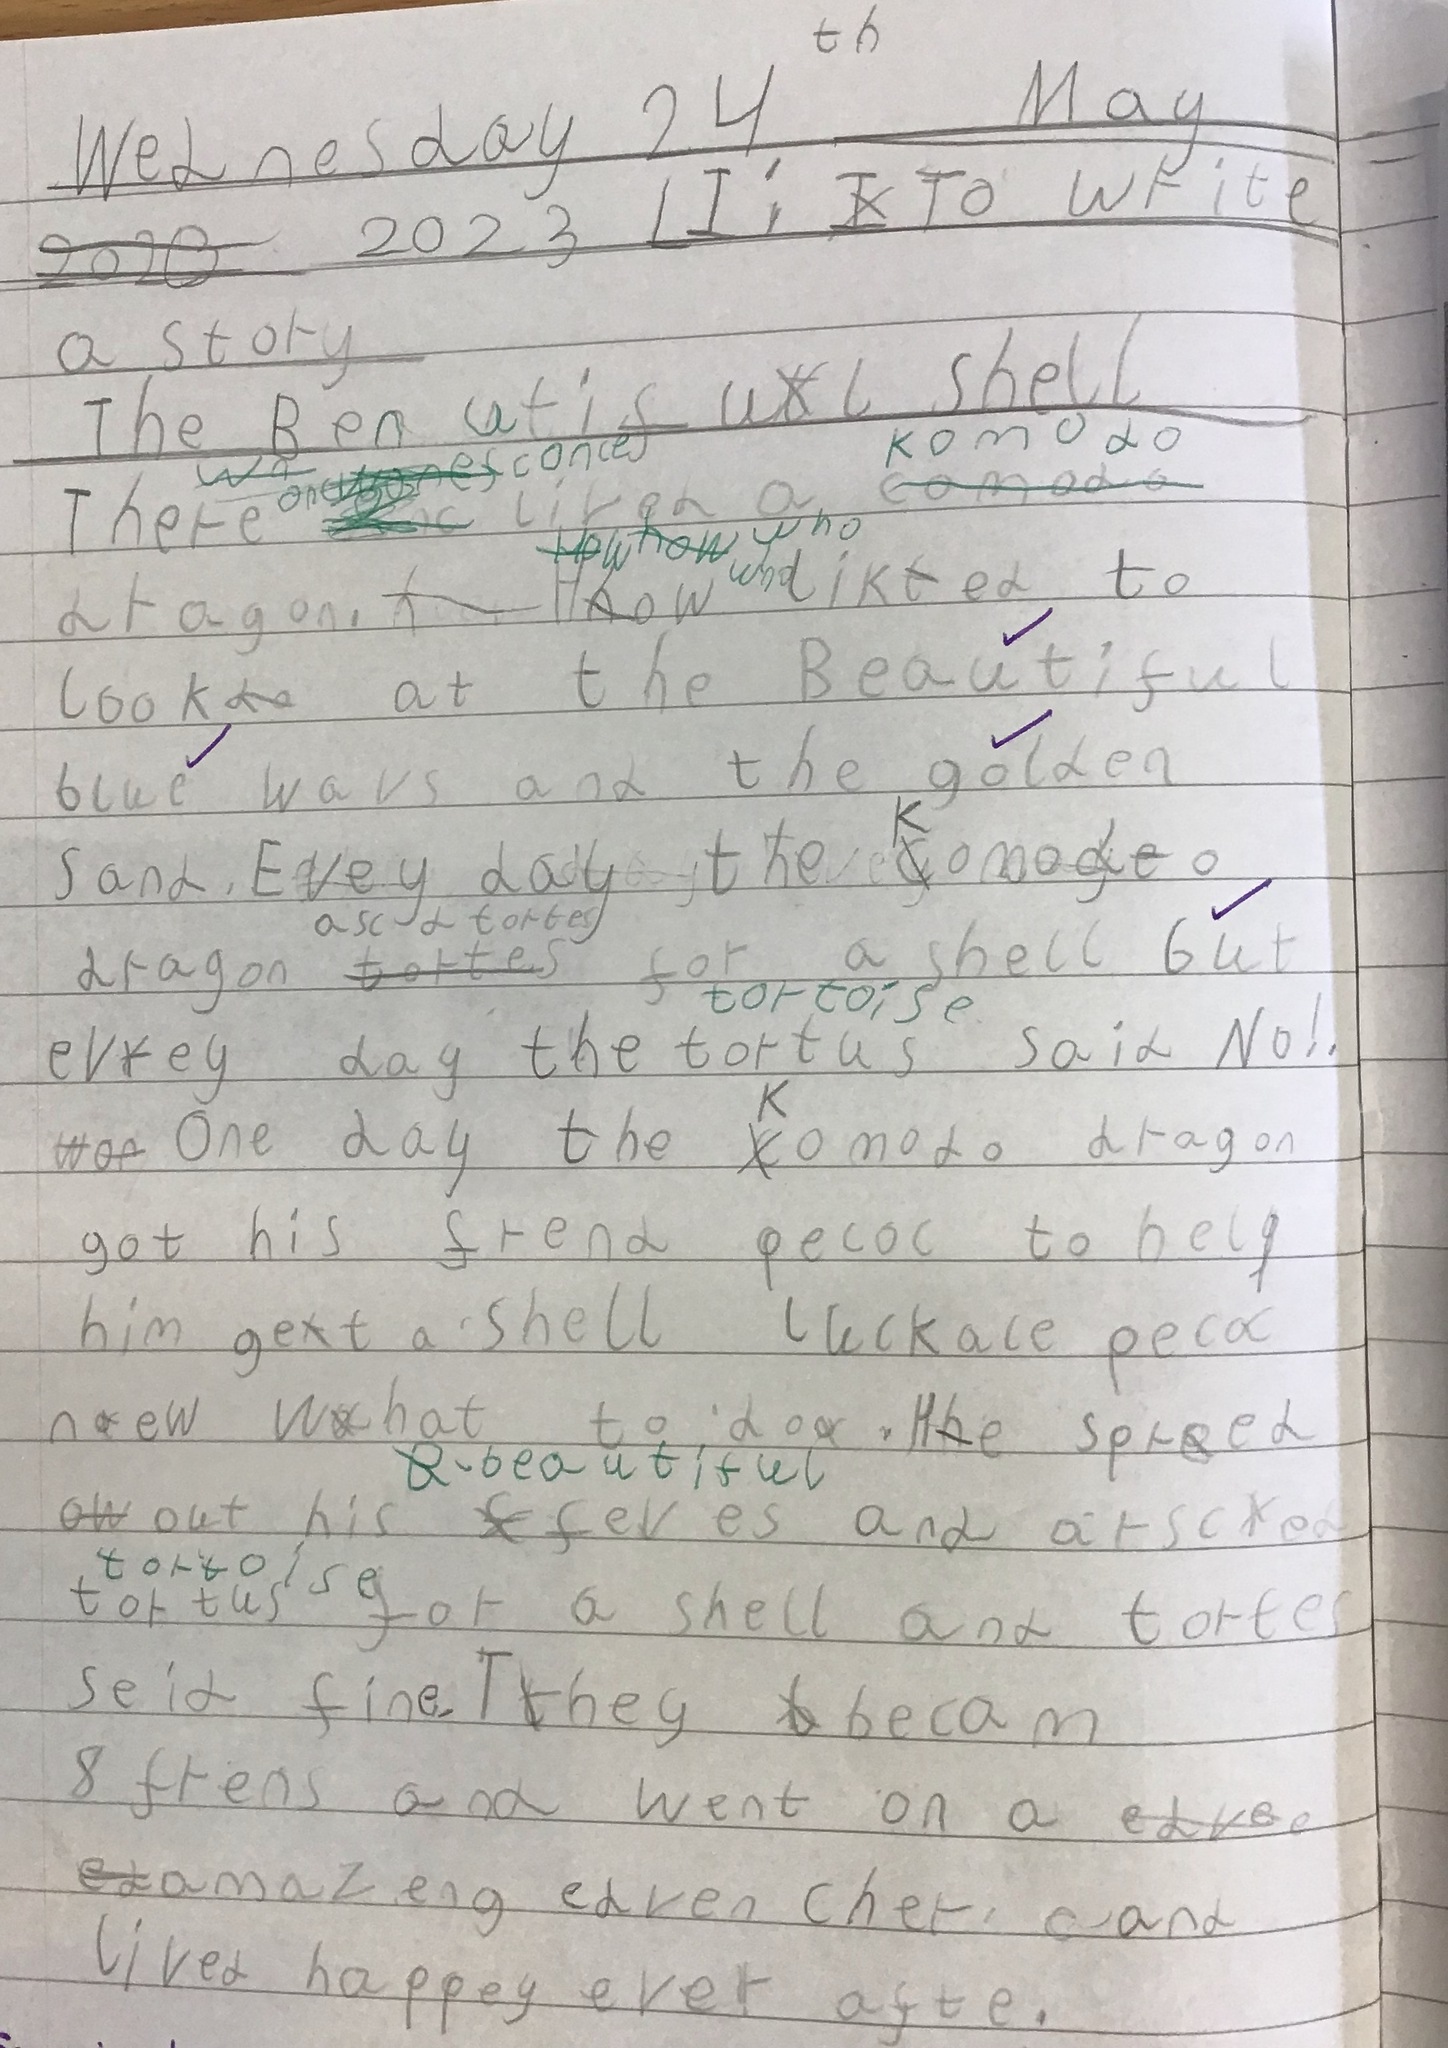 Wednesday 24th May
2020 2023 LI: To write
a story
The Beautiful shell
komodo
onces
There lived a comodo
who
dragon. How liked to
look at the Beautiful
blue wavs and the golden
sand. Evey day the Komodo
ascd tortes
dragon tortes for a shell but
tortoise
evrey day the tortus said No!.
K
One day the komodo dragon
got his frend pecoc to help
him get a shell luckale pecoc
new what to do. He spred
beautiful
out his feves and arscked
tortoise
tortus for a shell and tortes
seid fine. They becam
8 frens and went on a
amazeng edvencher. and
lived happey ever afte.